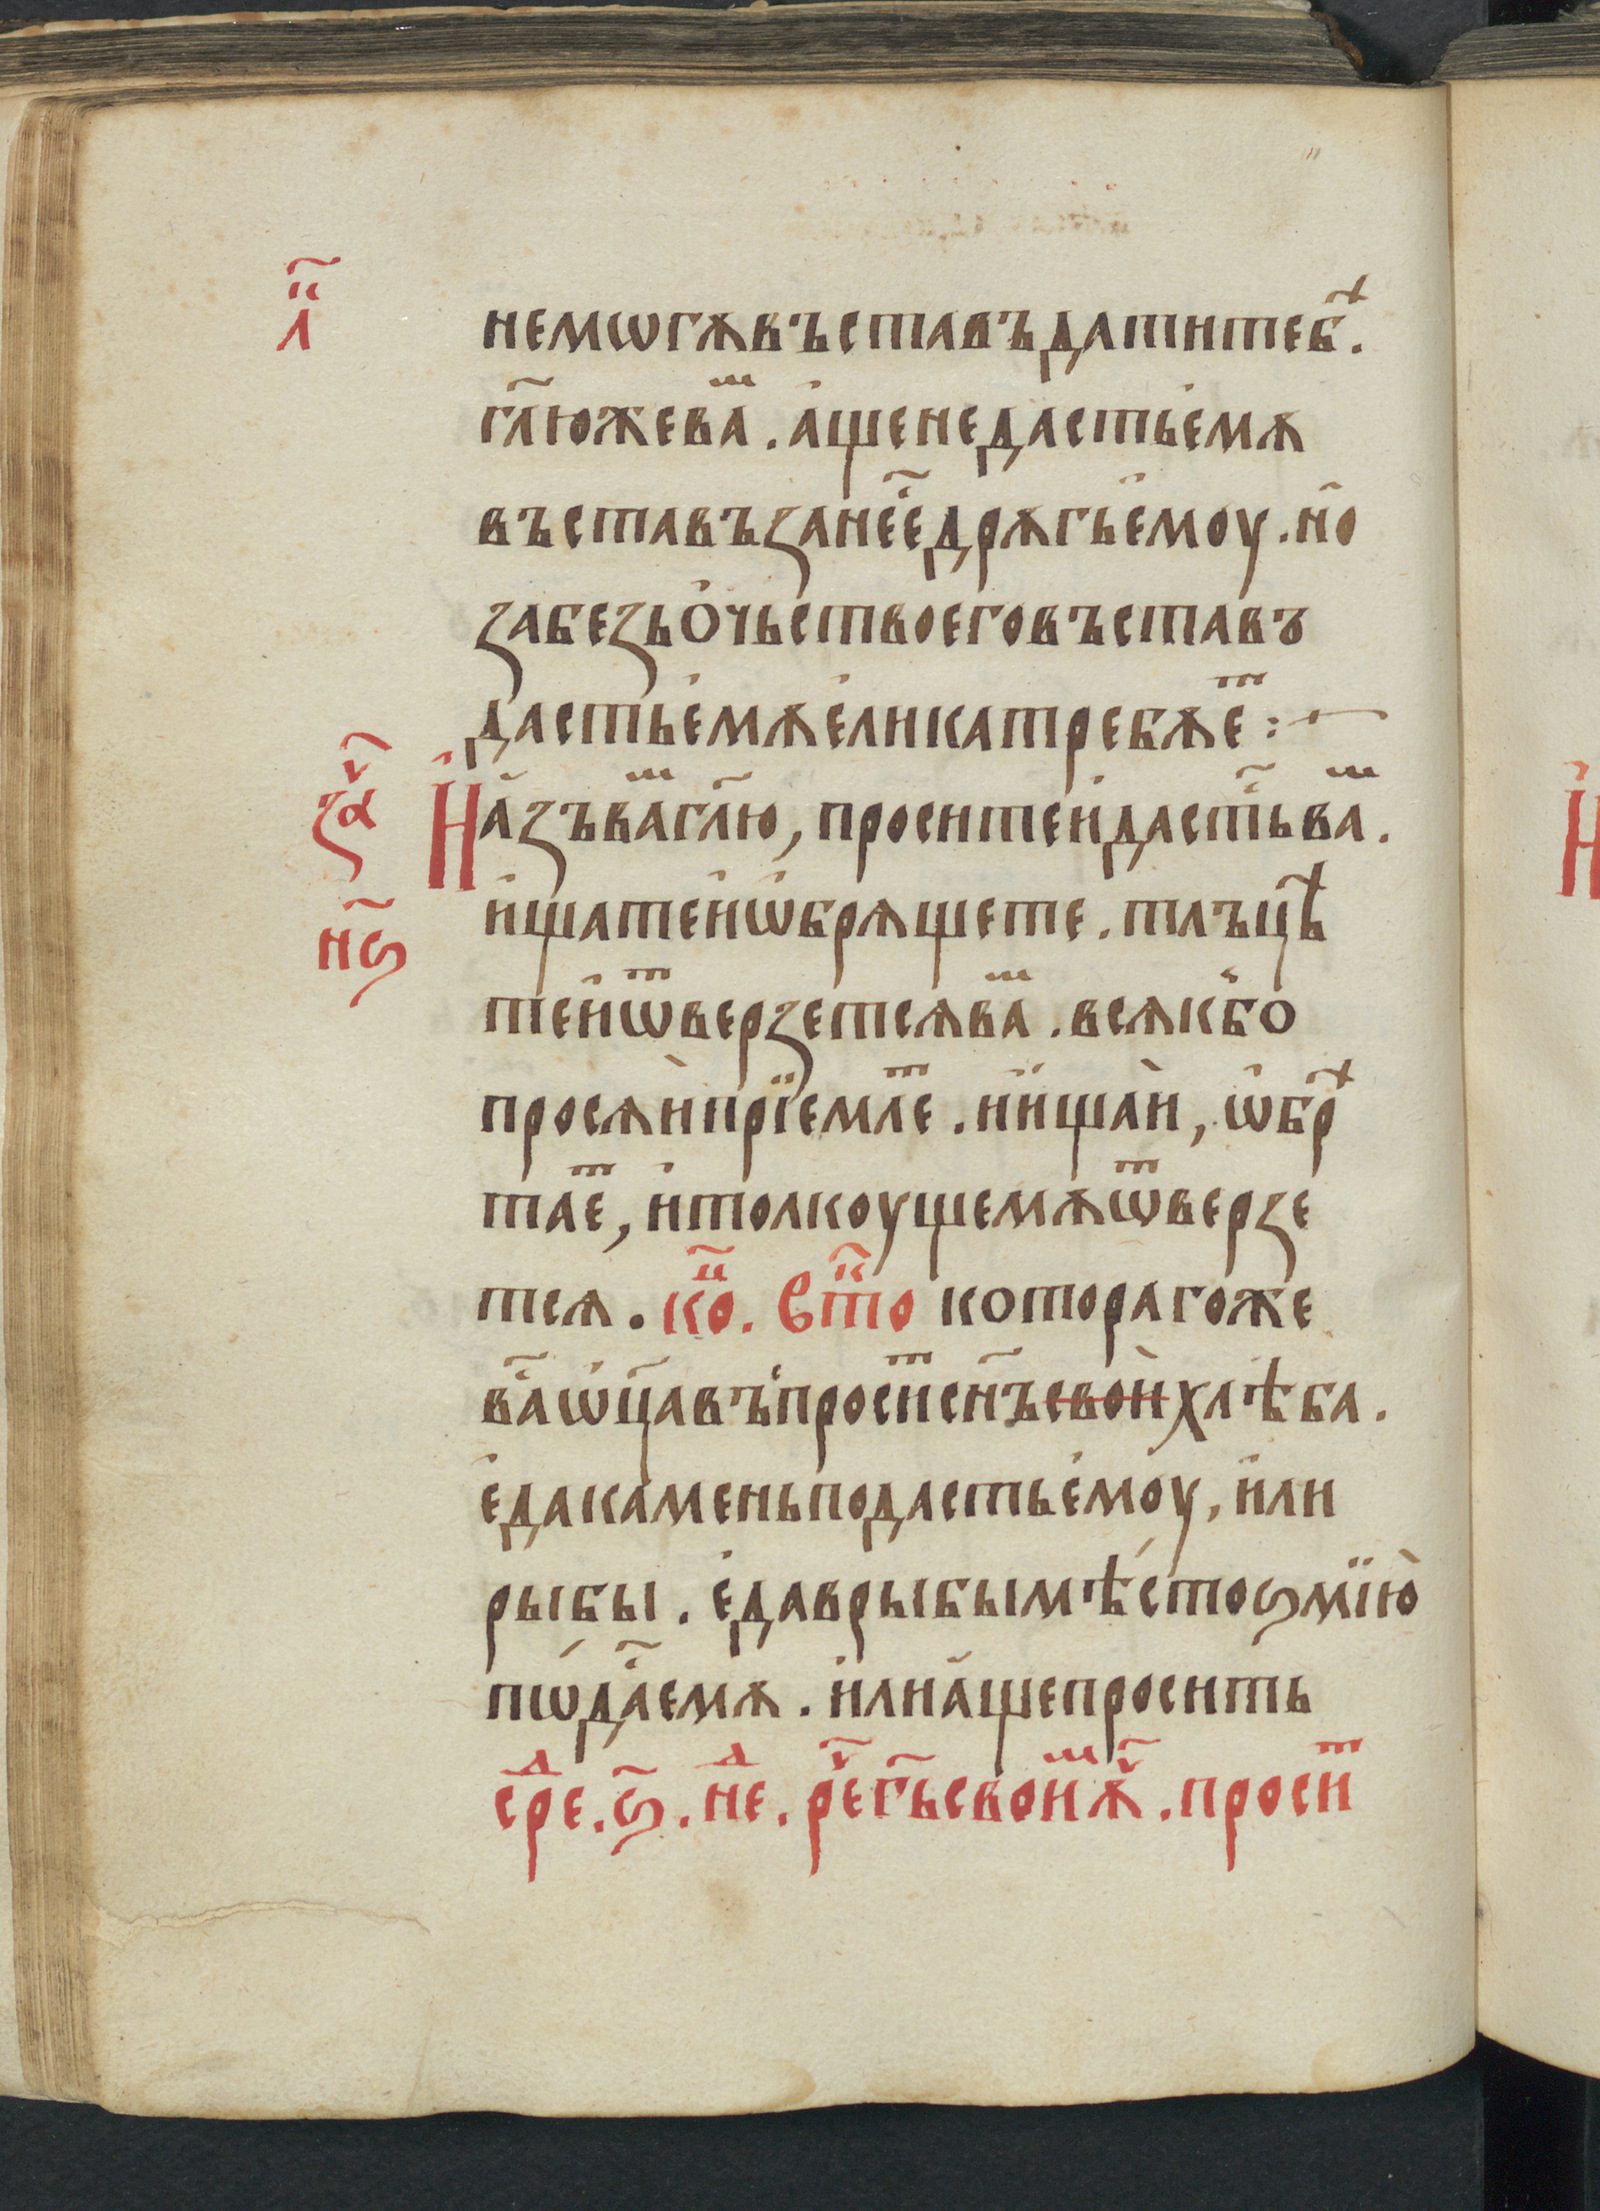 л҃и
немѡгѫвъставъдатитебѣ.
гл҃южева́ⷨ. а́щенеда́стьемѫ
въставъꙁанеедрѫгъемоу. но
ꙁабеꙁьочьствоеговъставъ
дастьемѫеликатребѫеⷮ:
ꙁаⷱ҇ Иаꙁъваⷨгл҃ю, проситеидастьсѧваⷨ.
н҃ѕ ищатеиѡбрѧщете. тлъцѣ
теиѿверꙁетсѧваⷨ. всѧкбо
просѧипрїемлеⷮ. иищаи, ѡбрѣ
таеⷮ, итолкоущемѫѿверꙁе
тсѧ. коⷰ. Вⷮоⷬ котораго же
ваⷭѡц҃авъпросиⷮсн҃ъсвоихлѣба.
едакаменьподастьемоу, или
рыбы. едаврыбымѣстоѕмїю
пѡдаⷭемѫ. илиащепросить
среⷣ. ѕ҃. неⷣ. реⷱ҇гь своиⷨѫⷱ҇. просиⷮ